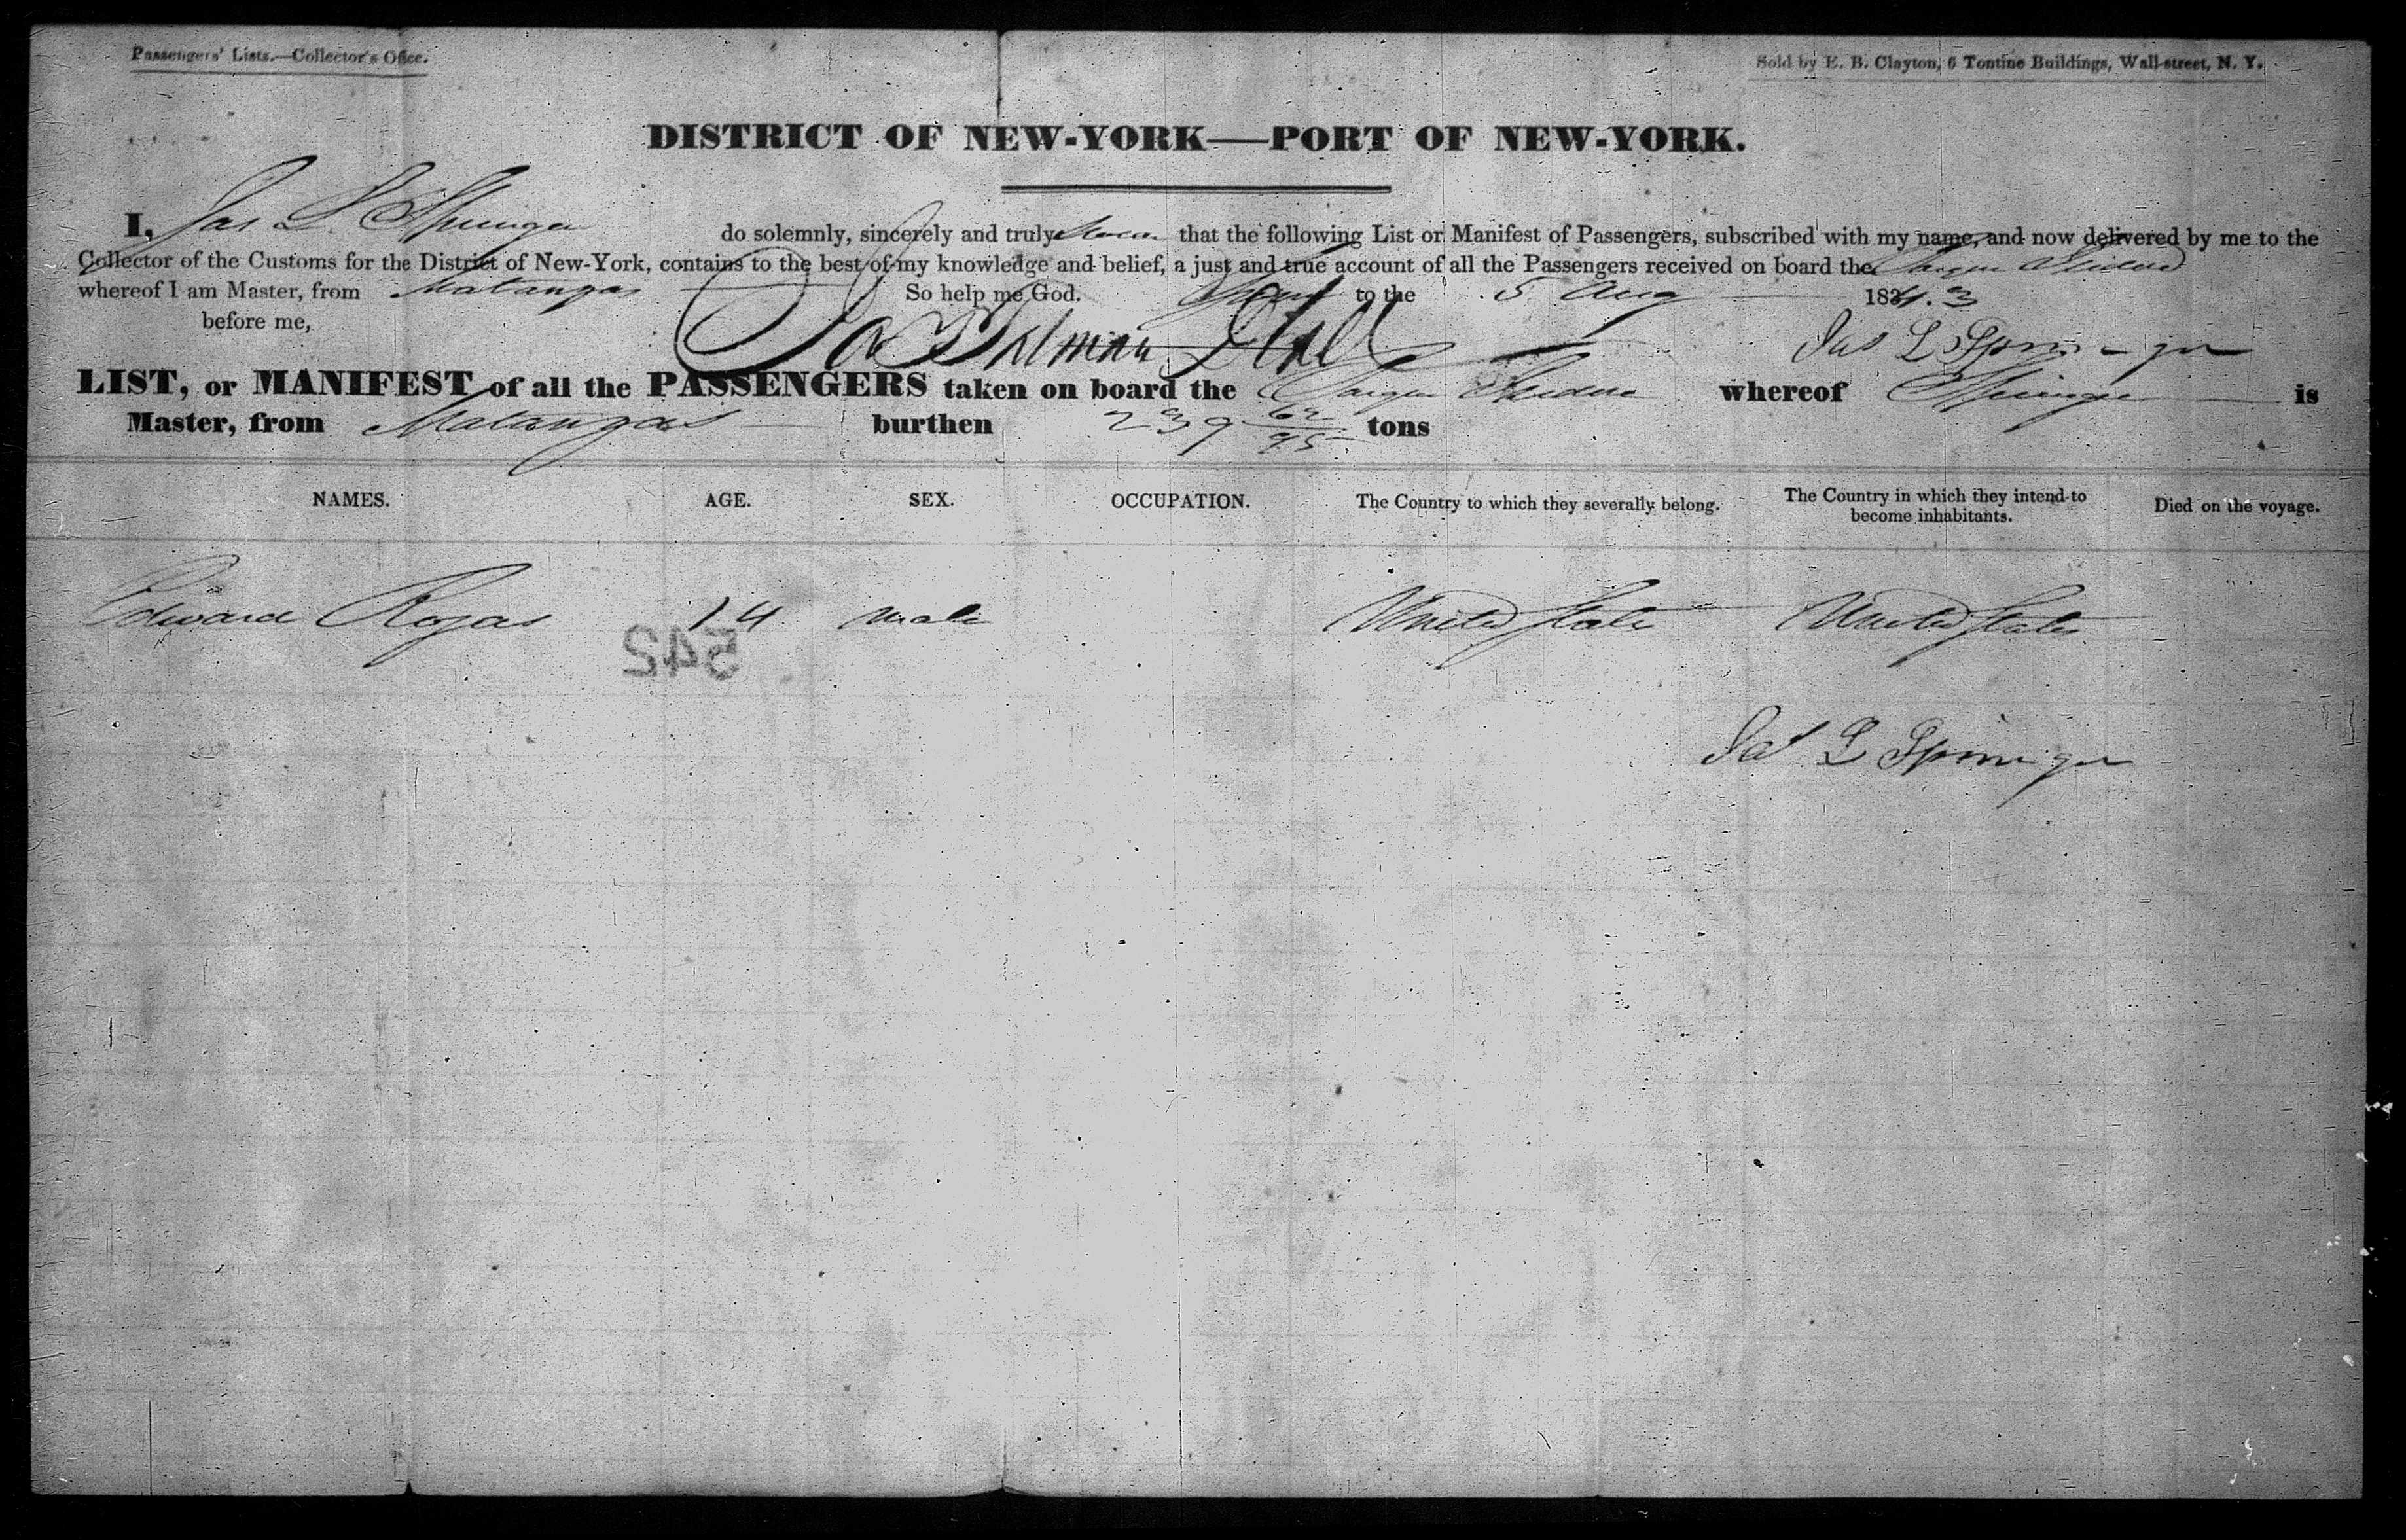 Passengers' Lists.—Collector's Office.
Sold by E. B. Clayton, 6 Tontine Buildings, Wall-street, N. Y.
DISTRICT OF NEW-YORK—PORT OF NEW-YORK.
I, Jas L. Springer do solemnly, sincerely and truly swear that the following List or Manifest of Passengers, subscribed with my name, and now delivered by me to the
Collector of the Customs for the District of New-York, contains to the best of my knowledge and belief, a just and true account of all the Passengers received on board the Barque
whereof I am Master, from Matanzas So help me God. Sworn to the 5 Aug 1843
before me, Jas L Springer
LIST, or MANIFEST of all the PASSENGERS taken on board the Barque whereof Springer is
Master, from Matanzas burthen 239 62/95 tons
NAMES. AGE. SEX. OCCUPATION. The Country to which they severally belong. The Country in which they intend to become inhabitants. Died on the voyage.
Edward Rojas 14 male United States United States
542
Jas L Springer